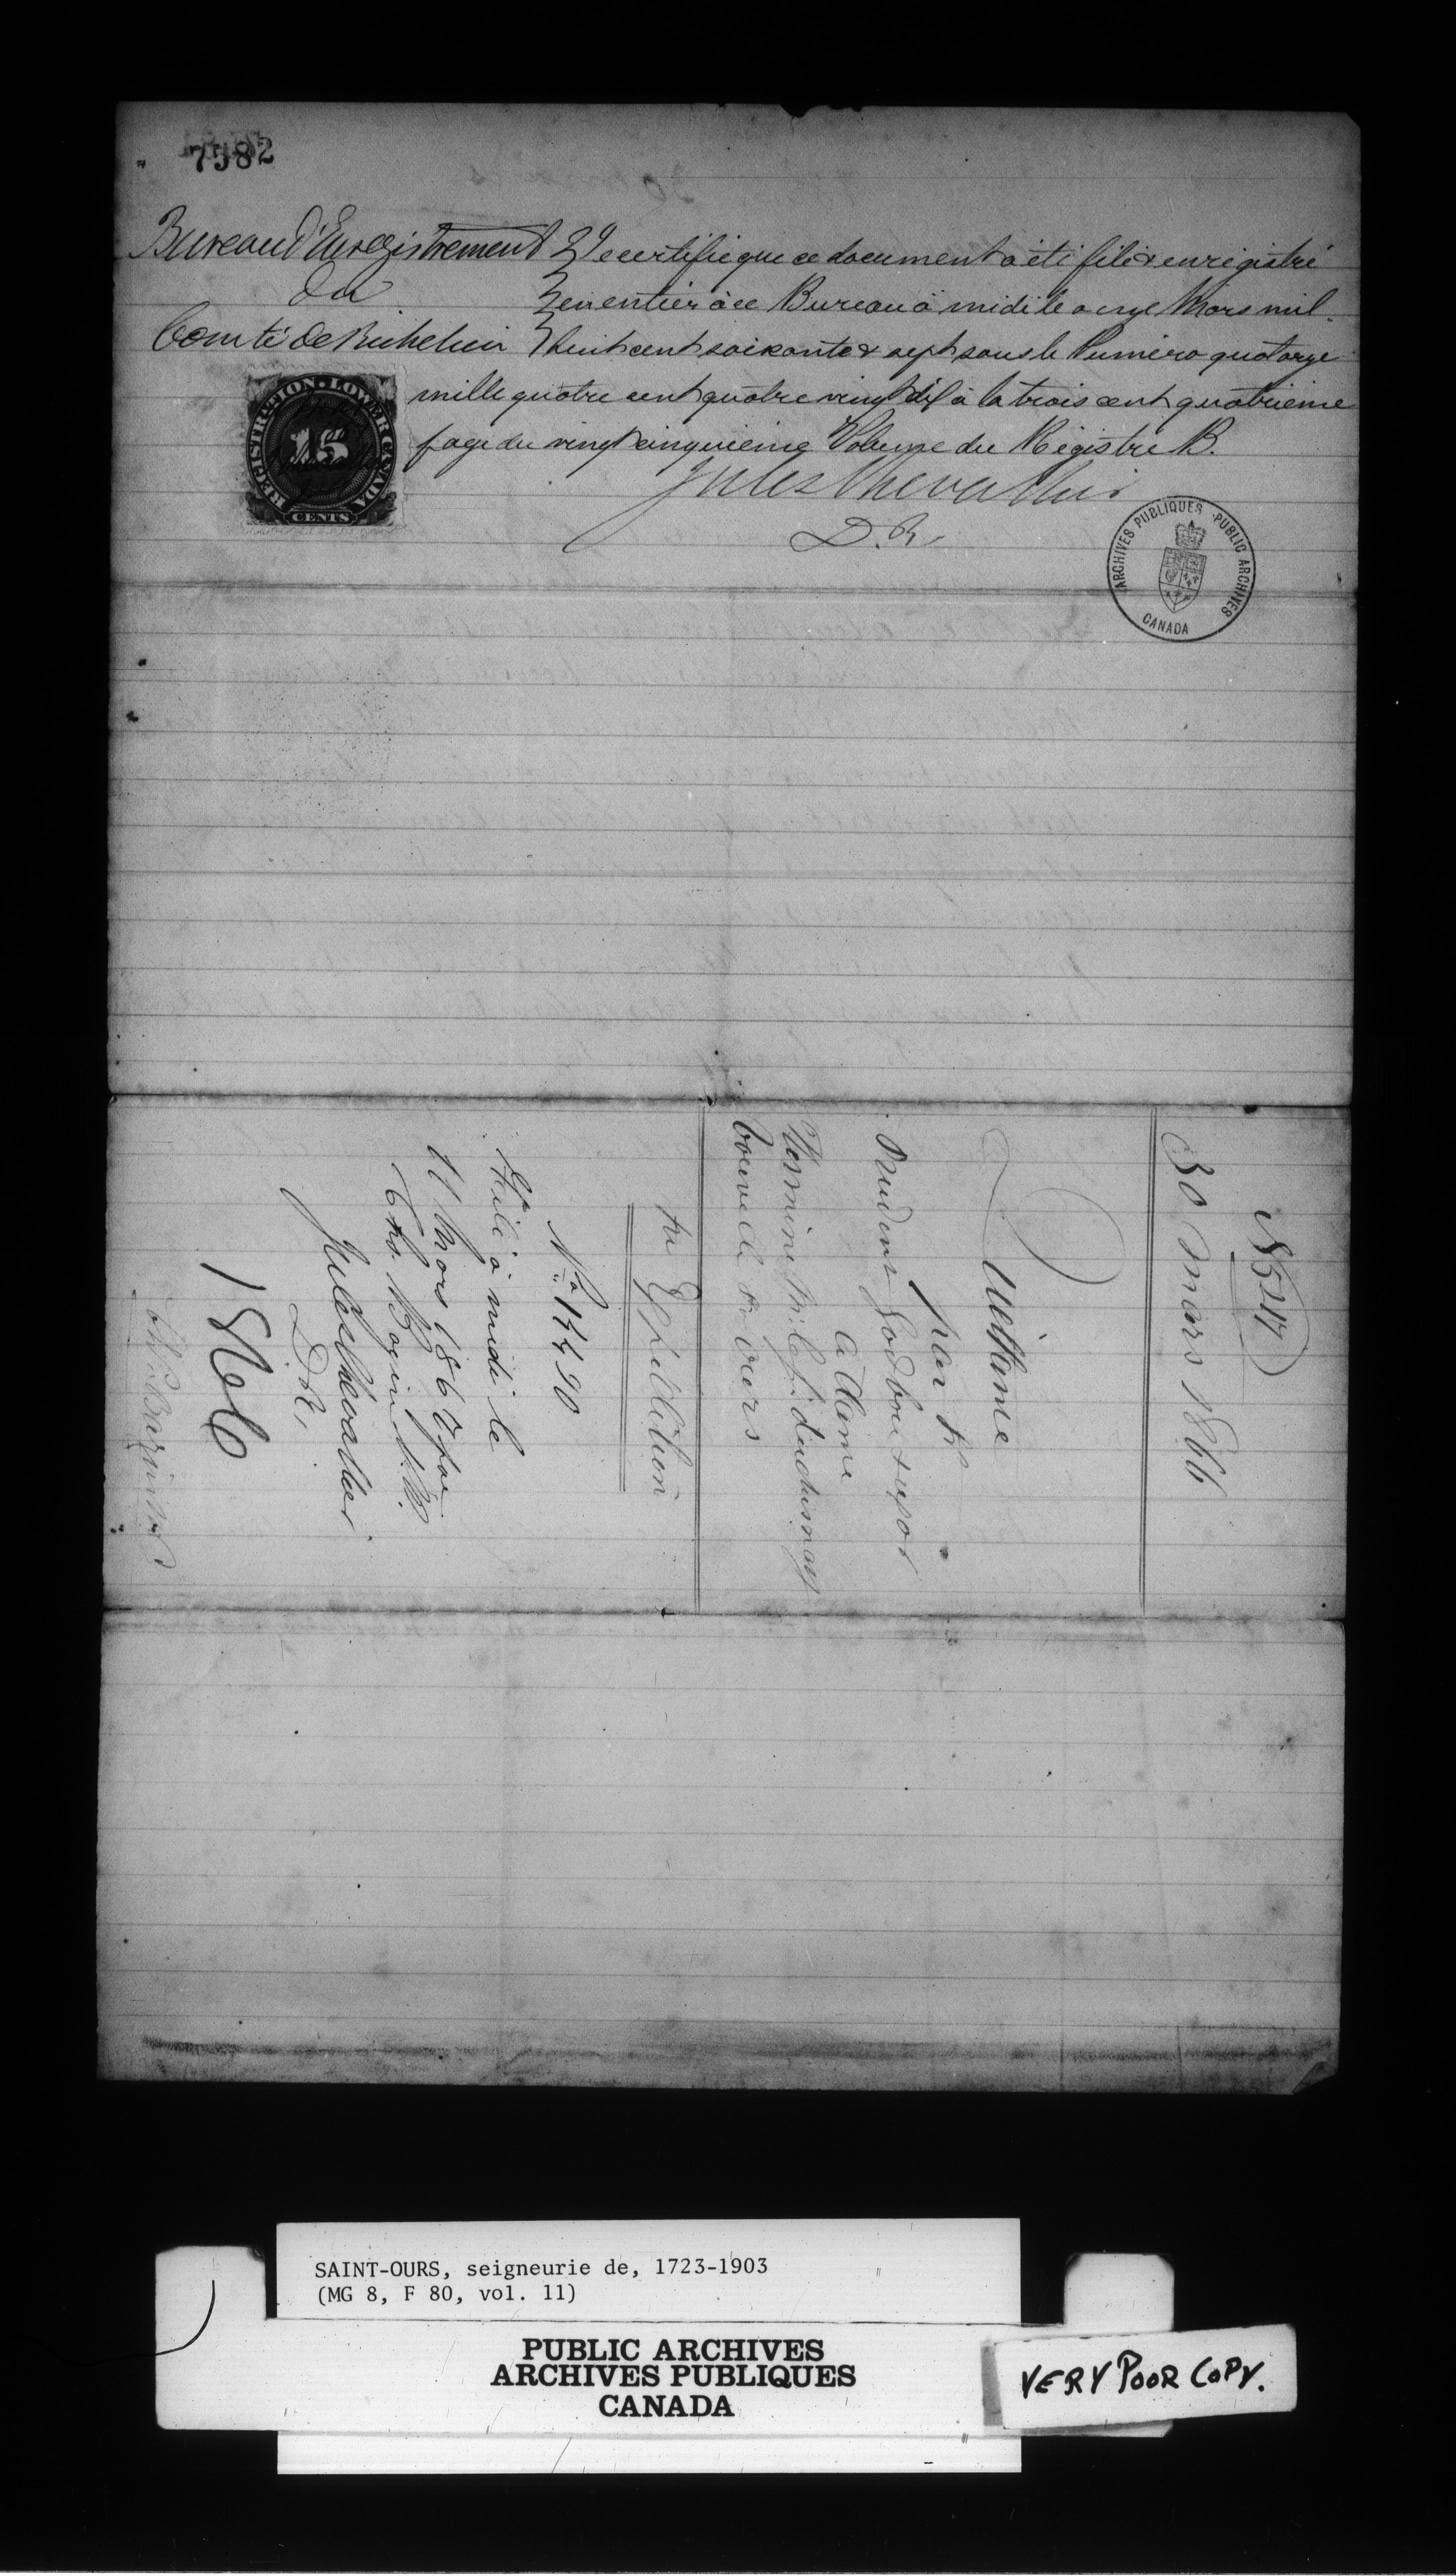 7982
Bureau d'Enregistrement
du
Comté de Richelieu
Je certifie que ce document a été filé & enrégistré
en entier à ce Bureau à midi le onze Mars mil
huit cent soixante & sept sous le Numéro quatorze
mille quatre cent quatre vingt dix à la trois cent quatrième
page du vingt cinquième Volume du Régistre B.
Jules Chevallier
D. R.
REGISTRATION · LOWER CANADA
15
CENTS
ARCHIVES PUBLIQUES · PUBLIC ARCHIVES
CANADA
30 Mars 1866
par
Prudent
à Dame
Hermine
Expédition
No 14490
Filé à midi le
11 Mars 1867 par
Jules Chevallier
D. R.
SAINT-OURS, seigneurie de, 1723-1903
(MG 8, F 80, vol. 11)
PUBLIC ARCHIVES
ARCHIVES PUBLIQUES
CANADA
VERY POOR COPY.